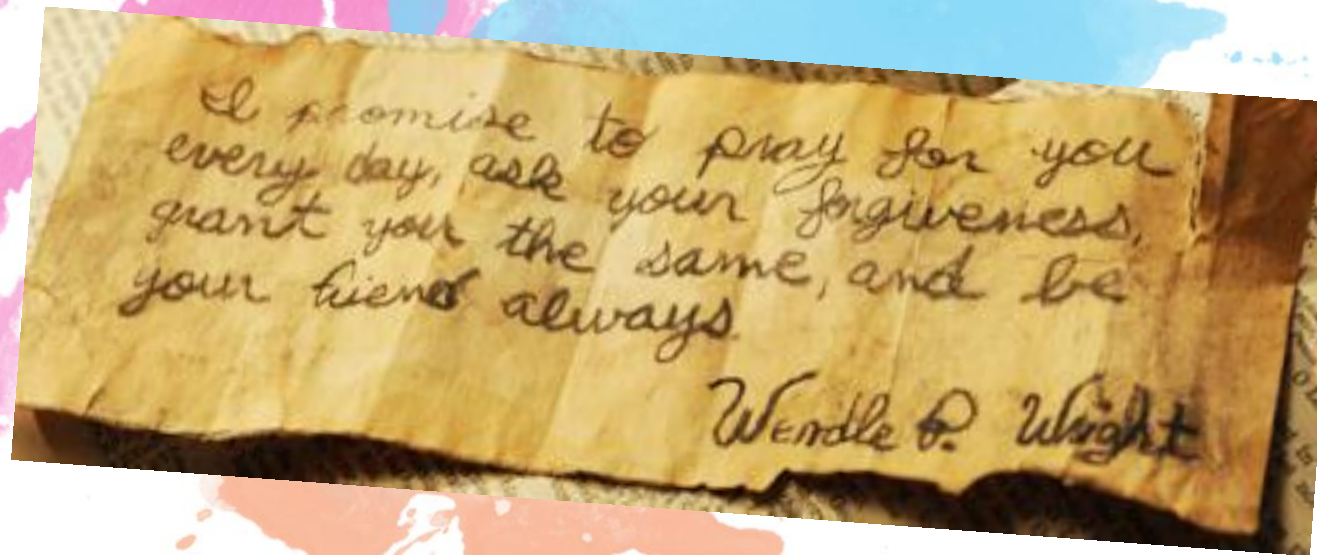 I promise to pray for you
every day, ask your forgiveness,
grant you the same, and be
your friend always.
Wendle P. Wright